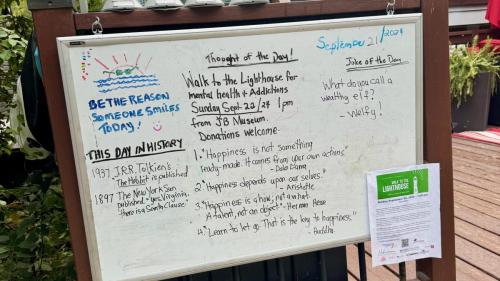 September 21/2024
Thought of the Day!
Walk to the Lighthouse for
mental health & Addictions
Sunday Sept. 20/24 1pm
from JB Museum.
Donations welcome.
Joke of the Day
What do you call a
wealthy elf?
- Welfy!
BE THE REASON
SOMEONE SMILES
TODAY!
THIS DAY IN HISTORY
1937 J.R.R. Tolkien's
The Hobbit is published
1897 The New York Sun
published "Yes, Virginia,
there is a Santa Clause"
1. "Happiness is not something
ready-made. It comes from your own actions."
- Dalai Lama
2. "Happiness depends upon our selves."
- Aristotle
3. "Happiness is a how; not a what.
A talent, not an object" - Herman Hesse
4. "Learn to let go. That is the key to happiness."
- Buddha
WALK TO THE
LIGHTHOUSE